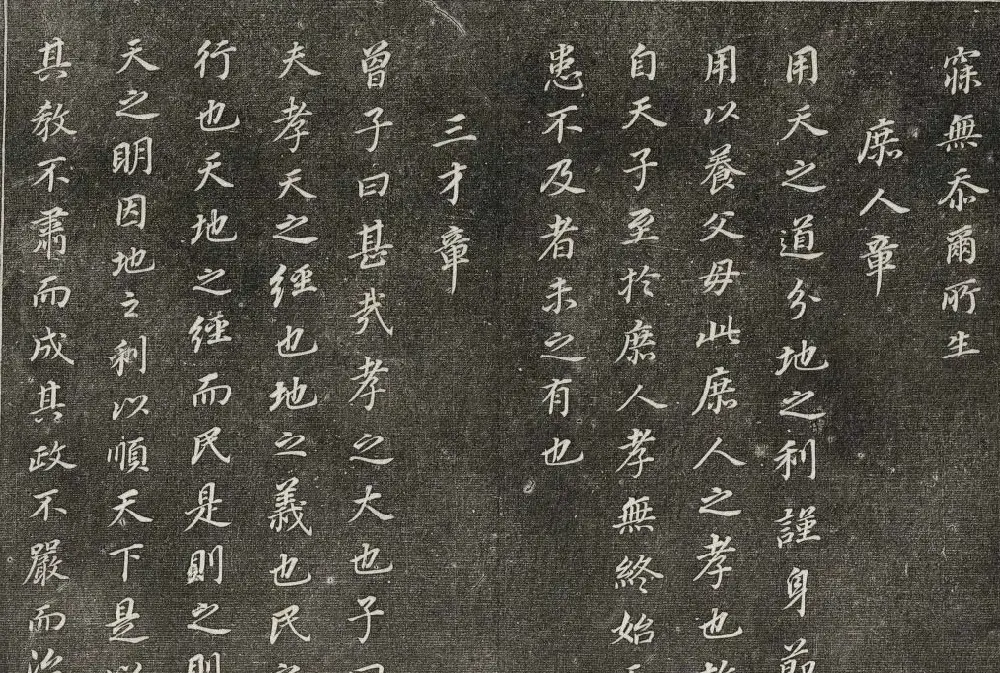 寐無忝爾所生
庶人章
用天之道分地之利謹身節
用以養父母此庶人之孝也故
自天子至於庶人孝無終始而
患不及者未之有也
三才章
曾子曰甚哉孝之大也子曰
夫孝天之經也地之義也民之
行也天地之經而民是則之則
天之明因地之利以順天下是以
其教不肅而成其政不嚴而治